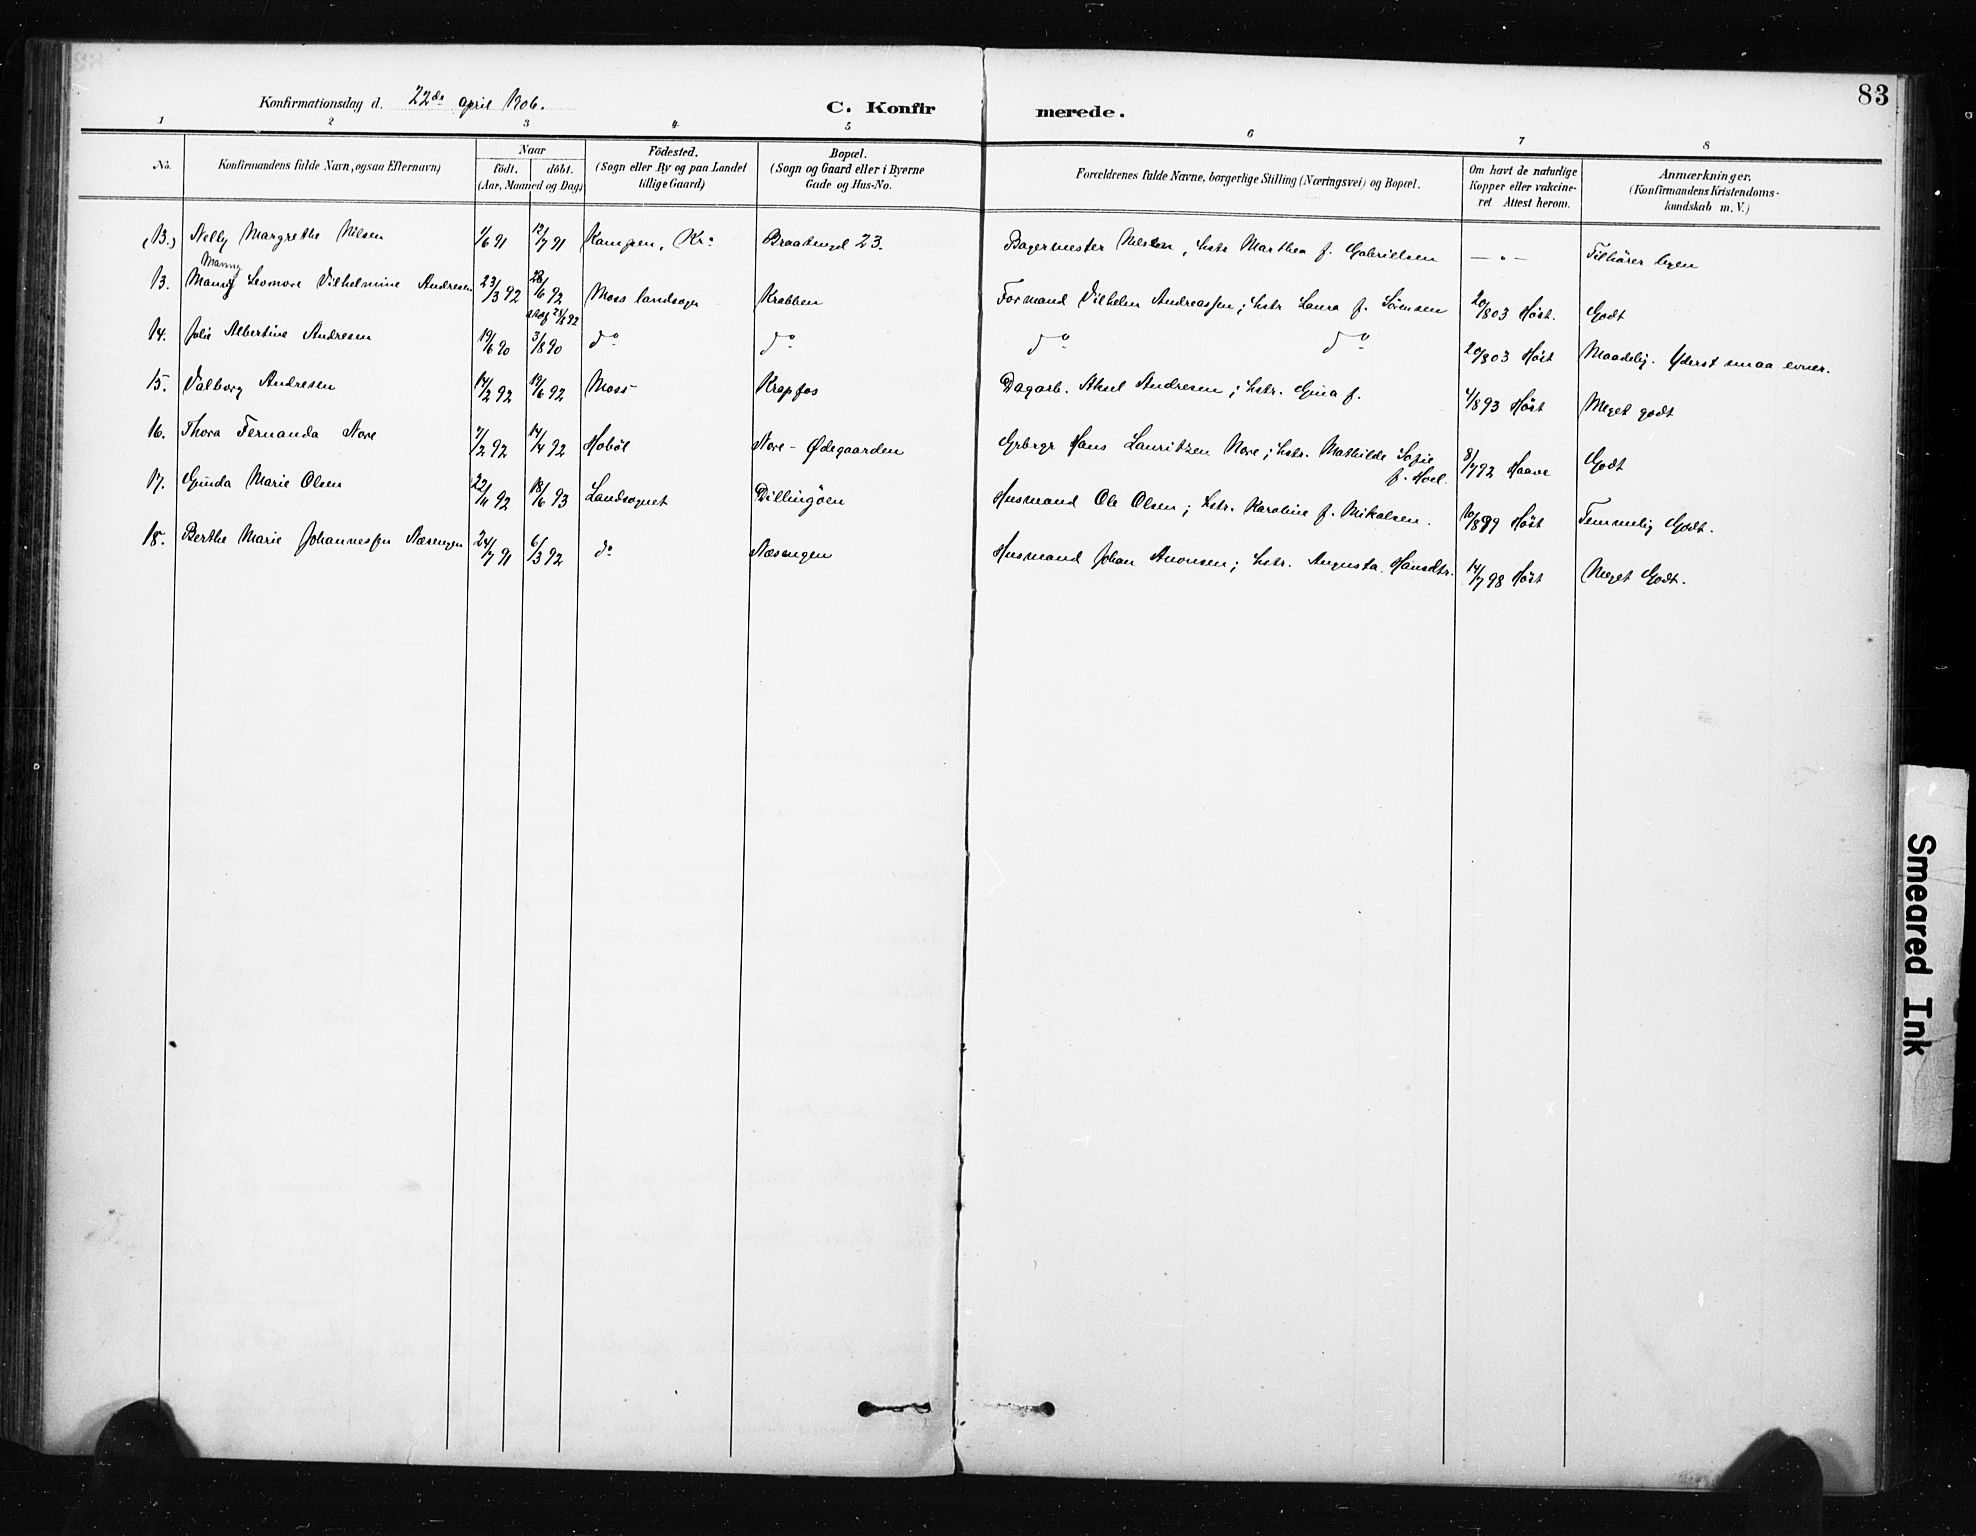 83
Konfirmationsdag d. 22de april 1906.
C. Konfirmerede.
1 2 3 4 5 6 7 8
No.
Konfirmandens fulde Navn, ogsaa Efternavn)
Naar
födt. döbt.
(Aar, Maaned og Dag)
Födested.
(Sogn eller By og paa Landet
tillige Gaard)
Bopæl.
(Sogn og Gaard eller i Byerne
Gade og Hus-No.
Forældrenes fulde Navne, borgerlige Stilling (Næringsvei) og Bopæl.
Om havt de naturlige
Kopper eller vakcine-
ret Attest herom.
Anmærkninger.
(Konfirmandens Kristendoms-
kundskab m. V.)
(13.) Nelly Margrethe Nilsen 1/6 91 12/7 91 Kampen, Kr: Braatengd 23. Bagermester Nilsen, hstr Marthea f. Gabrielsen — " — Tilhører byen
Manny
13. Manny Leonore Vilhelmine Andresen 23/3 92 28/6 92 Moss landsogn Krabben Formand Vilhelm Andreassen; hstr Laura f. Sørensen 20/8 03 Höst. Godt
14. Julie Albertine Andresen 19/6 90 3/8 90 do do do do 20/8 03 Höst Maadelig. Yderst smaa evner.
15. Valborg Andresen 14/2 92 19/6 92 Moss Krapfos Dagarb. Aksel Andresen; hstr. Gina f. 4/8 93 Höst Meget godt
16. Thora Fernanda Nore 7/2 92 14/4 92 Hobøl Nore - Ødegaarden Grbrgr Hans Lauritzen Nore; hstr. Mathilde Sofie
f. Hoel. 8/7 92 Haave Godt
17. Gunda Marie Olsen 22/11 92 18/6 93 Landsognet Dillingöen Husmand Ole Olsen; hstr. Karoline f. Mikalsen. 10/8 99 Höst Temmelig Godt.
18. Berthe Marie Johannessen Næsengen 24/7 91 6/3 92 do Næsengen Husmand Johan Aronsen; hstr. Augusta Hansdtr. 14/7 98 Höst Meget Godt.
Smeared Ink